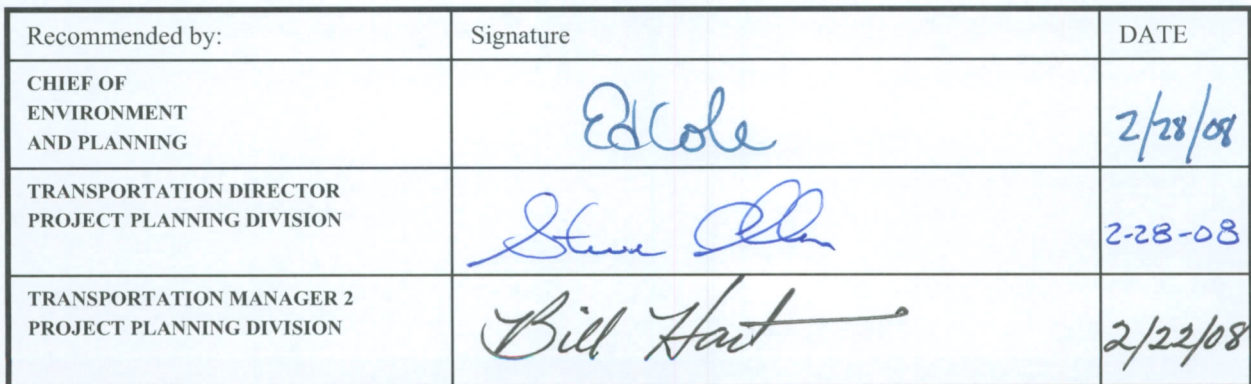 Recommended by: Signature DATE
CHIEF OF
ENVIRONMENT
AND PLANNING
Ed Cole 2/28/08
TRANSPORTATION DIRECTOR
PROJECT PLANNING DIVISION
Steve Allen 2-28-08
TRANSPORTATION MANAGER 2
PROJECT PLANNING DIVISION
Bill Hart 2/22/08